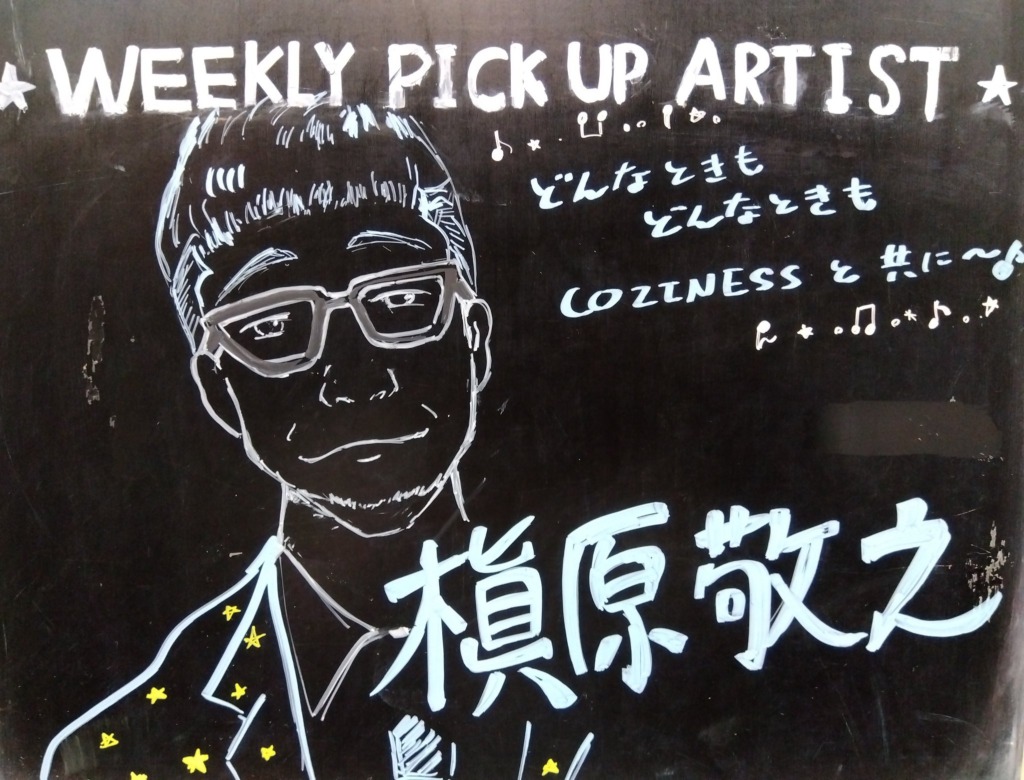 ★ WEEKLY PICK UP ARTIST ★
どんなときも
どんなときも
COZINESS と 共に〜♪
槇原敬之